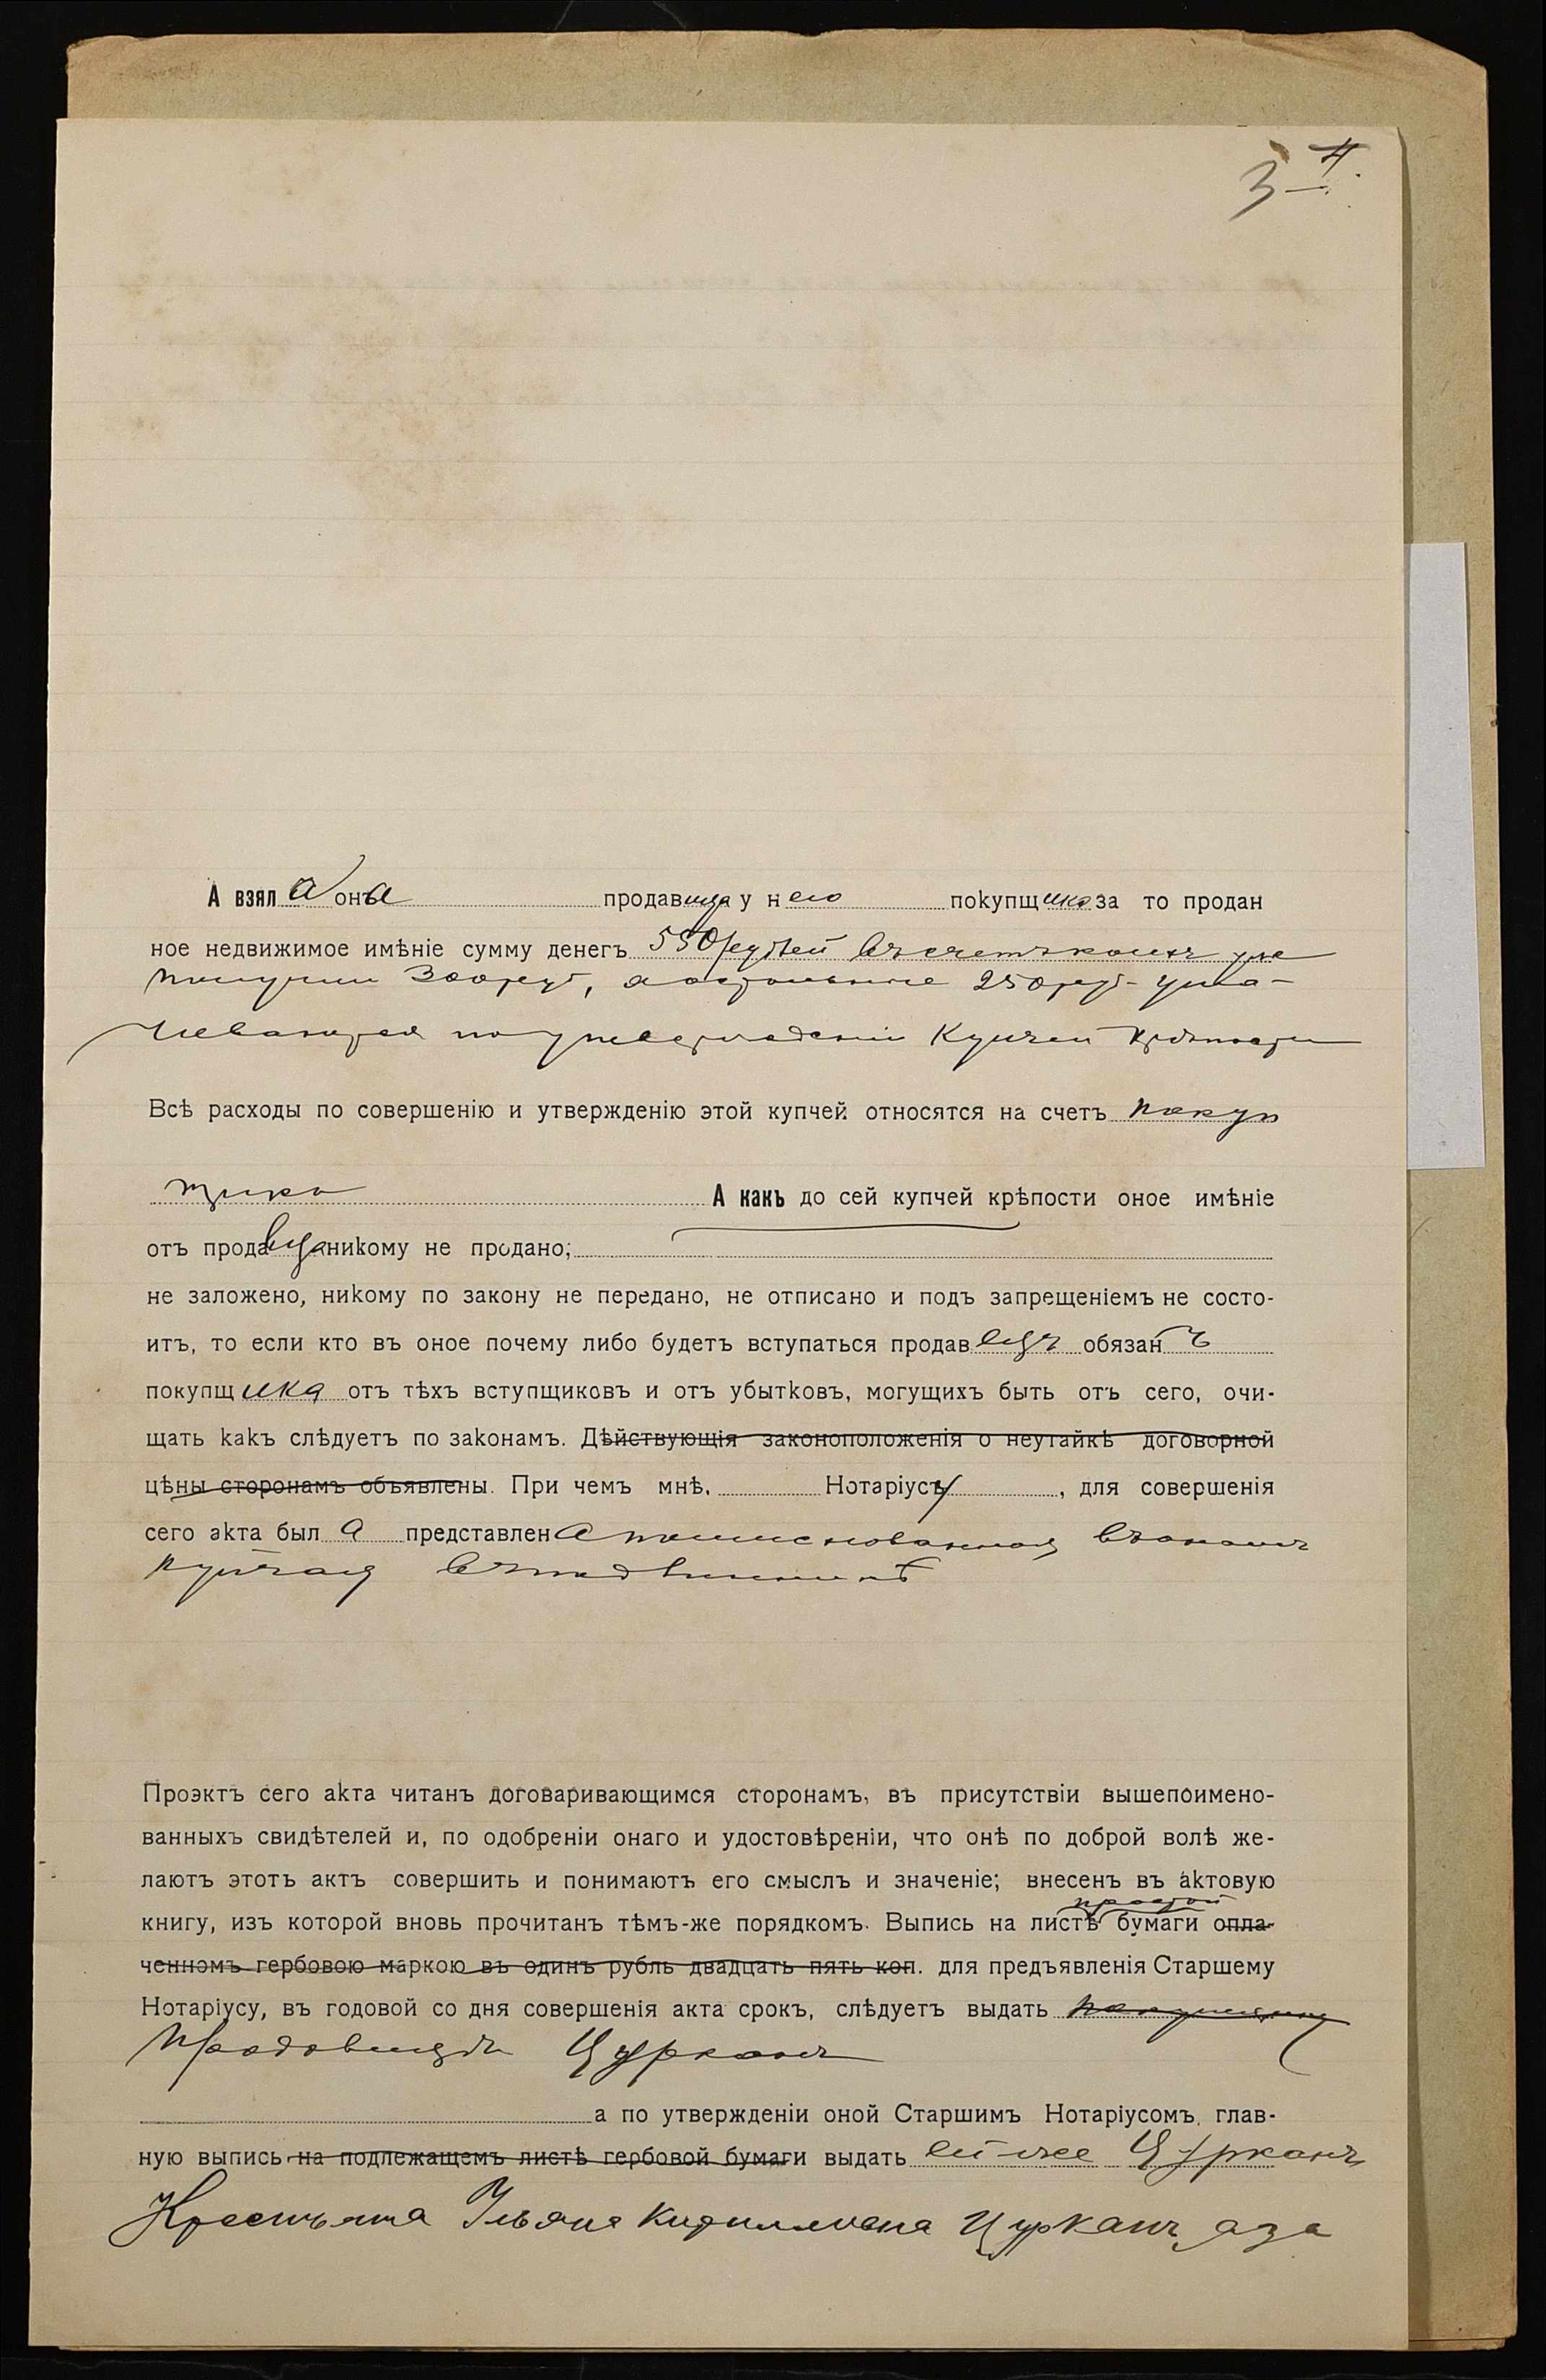 3
А взяла она продавица у него покупщика за то продан
ное недвижимое имѣніе сумму денегъ 550 рублей въ счетъ коихъ уже
получила 300 руб, а остальные 250 руб. упла-
чиваются по утвержденіи купчей крѣпости
Всѣ расходы по совершенію и утвержденію этой купчей относятся на счетъ покуп
щика А какъ до сей купчей крѣпости оное имѣніе
отъ продавца никому не продано;
не заложено, никому по закону не передано, не отписано и подъ запрещеніемъ не состо-
итъ, то если кто въ оное почему либо будетъ вступаться продавецъ обязанъ
покупщика отъ тѣхъ вступщиковъ и отъ убытковъ, могущихъ быть отъ сего, очи-
щать какъ слѣдуетъ по законамъ. Дѣйствующія законоположенія о неутайкѣ договорной
цѣны сторонамъ объявлены. При чемъ мнѣ, Нотаріусу, для совершенія
сего акта была представлена поименованная въ ономъ
купчая въ подлинникѣ
Проэктъ сего акта читанъ договаривающимся сторонамъ, въ присутствіи вышепоимено-
ванныхъ свидѣтелей и, по одобреніи онаго и удостовѣреніи, что онѣ по доброй волѣ же-
лаютъ этотъ актъ совершить и понимаютъ его смыслъ и значеніе; внесенъ въ актовую
простой
книгу, изъ которой вновь прочитанъ тѣмъ-же порядкомъ. Выпись на листѣ бумаги опла-
ченномъ гербовою маркою въ одинъ рубль двадцать пять коп. для предъявленія Старшему
Нотаріусу, въ годовой со дня совершенія акта срокъ, слѣдуетъ выдать покупщику
продавицѣ Цурканъ
а по утвержденіи оной Старшимъ Нотаріусомъ, глав-
ную выпись на подлежащемъ листѣ гербовой бумаги выдать ей же Цурканъ
Крестьянка Ульяна Кирилловна Цурканъ, а за